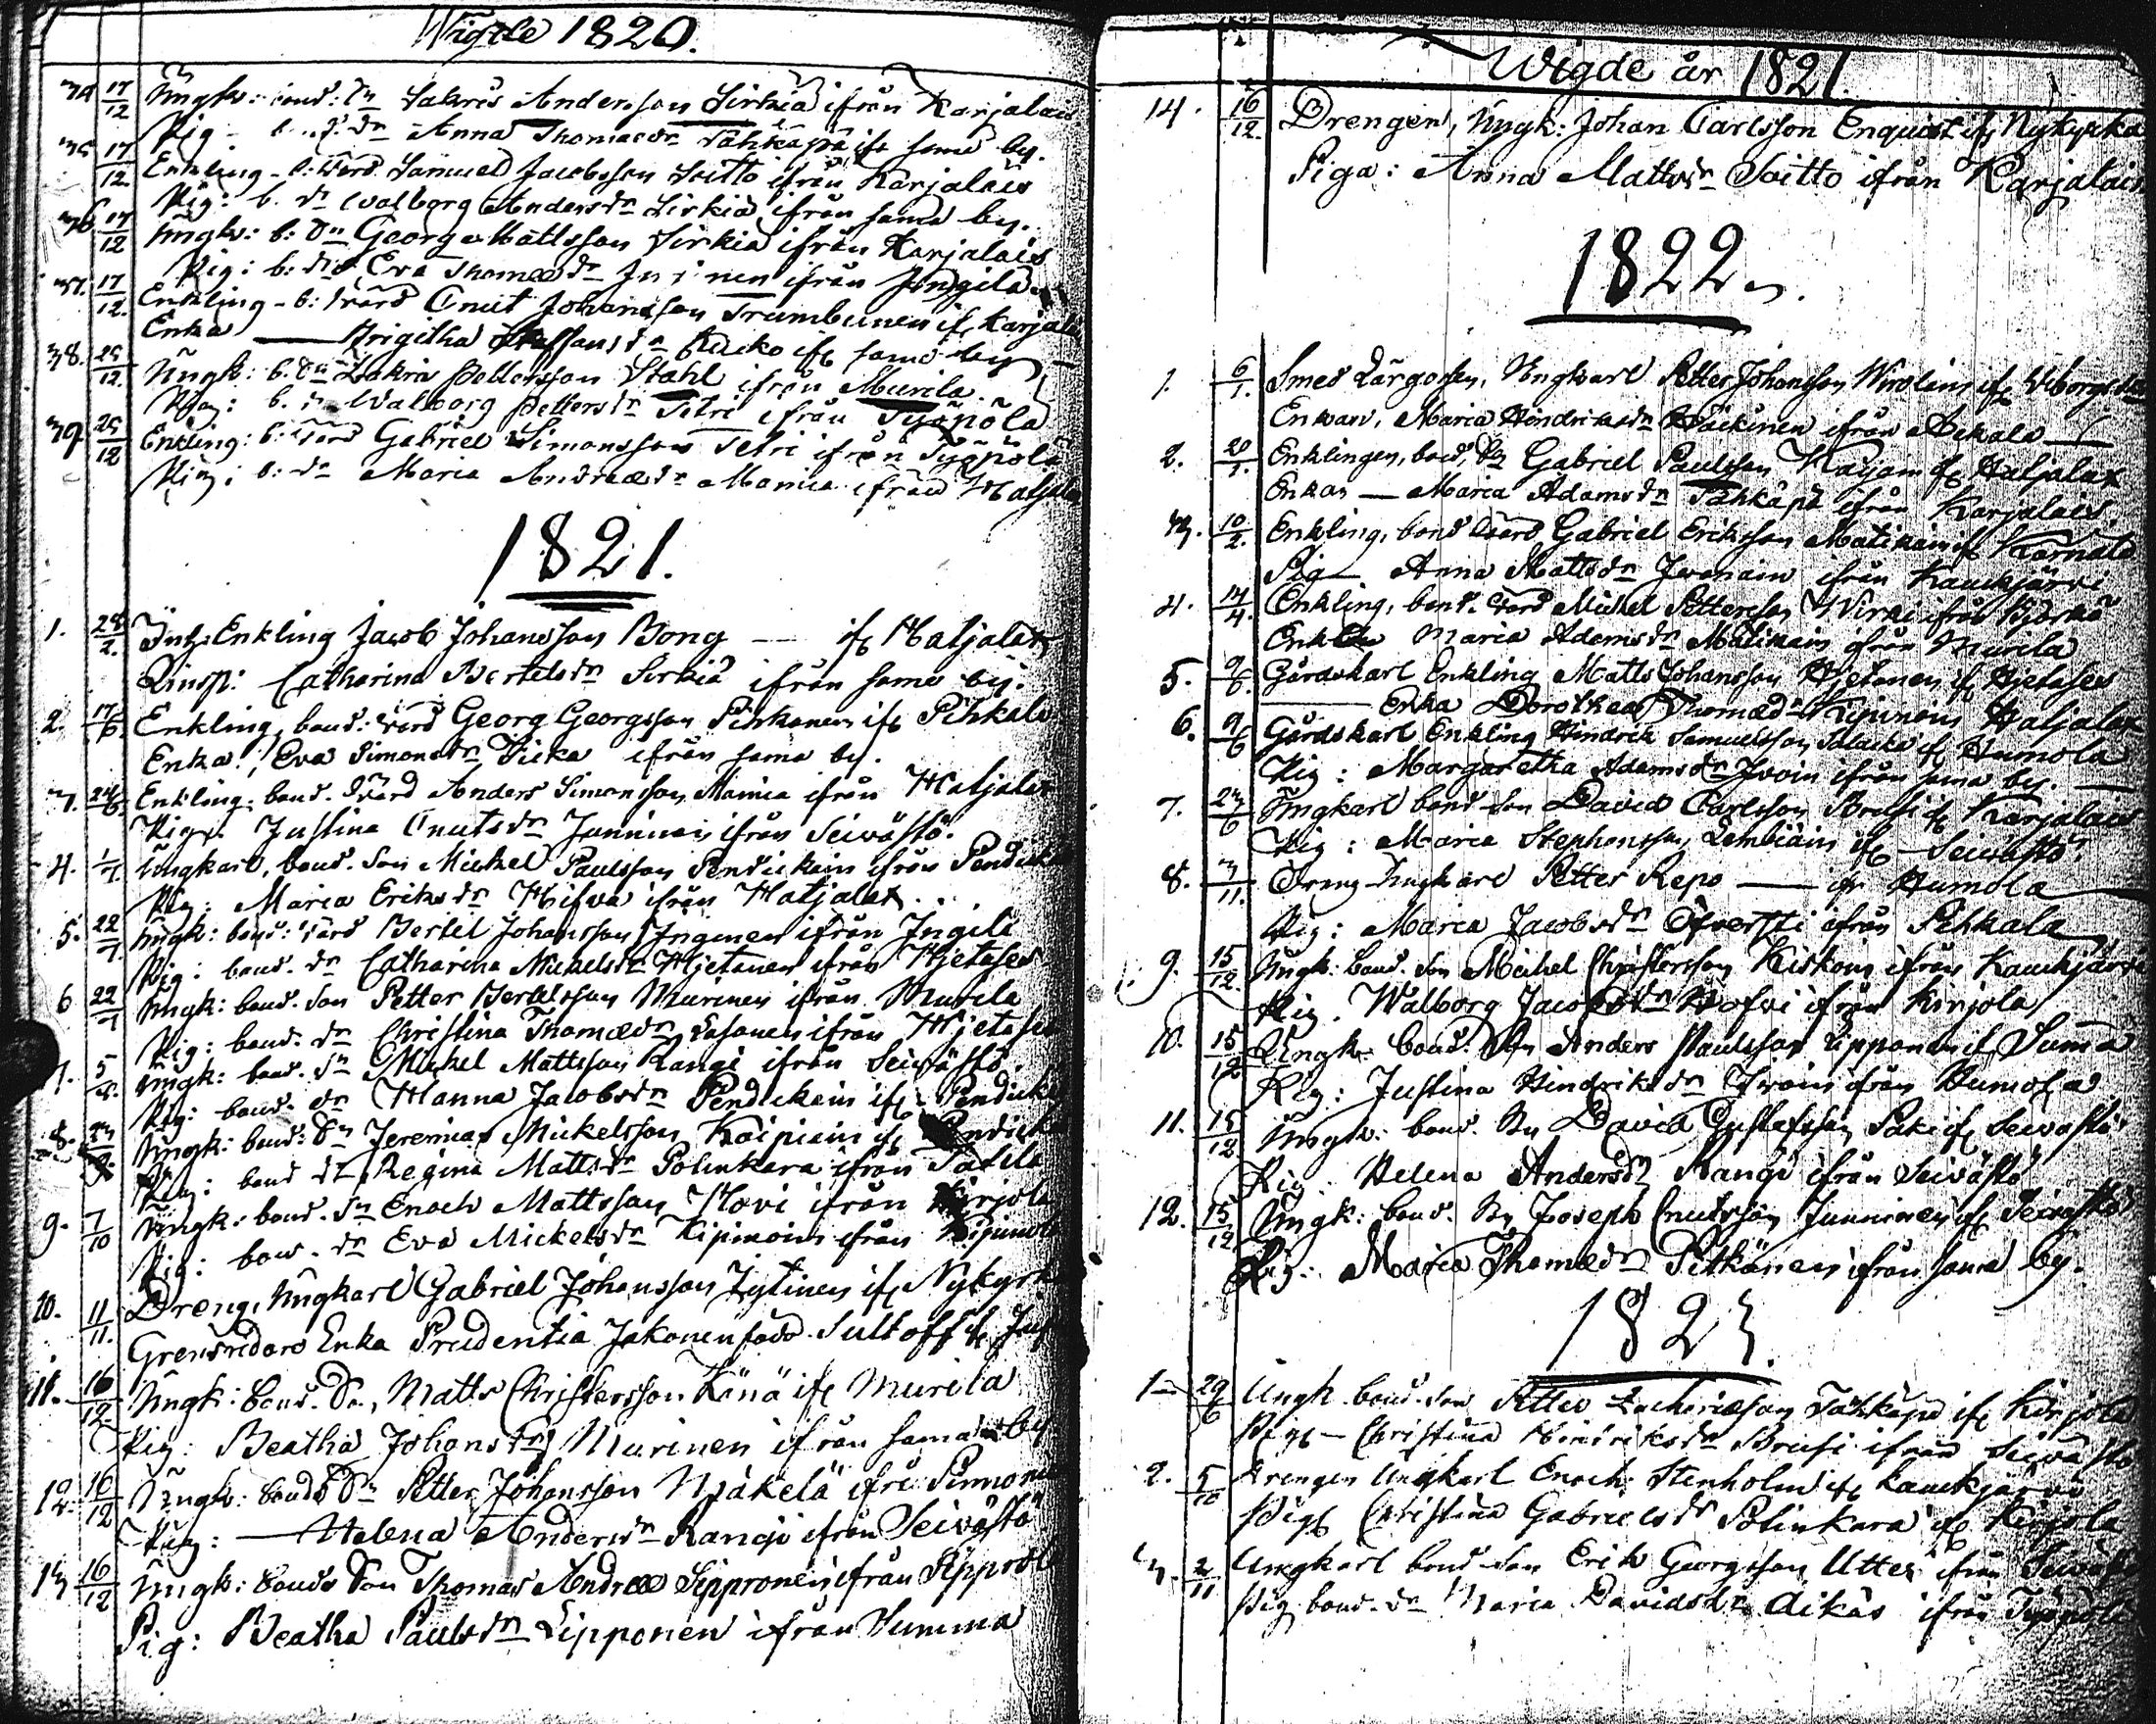 Wigde 1820.
34 17/12 Ungk: bond: sn Sakris Andersson Sirkiä ifrån Karjalais
Pig - b. dr Anna Thomaedr Tähkäpä ifr samd by.
35 17/12. Enkling - b: wärd Samuel Jacobsson Soitto ifrån Karjalais
Pig: b. dr Walborg Andersdr Sirkiä ifrån samd by.
36 17/12 Ungk: b: sn Georg Mattsson Sirkiä ifrån Karjalais
Pig: b: dr Eva Thomaedr ifrån Ingilä
37. 17/12. Enkling - b: wärd Cnut Johansson Trumbunen ifr Karjalais
Enka Brigitha Staffansdr Kucko ifr samd by
38. 25/12. Ungk: b. sn Zakris Pettersson Stahl ifrån Murila
Pig: b. dr Walborg Pettersdr Tetri ifrån Työpölä
39. 25/12 Enkling: b: wärd Gabriel Simonsson Tetri ifrån Työpölä
Pig: b: dr Maria Andraedr Mamia ifrån Hatjalax
1821.
1. 28/2. Enkling Jacob Johansson Bong — ifr Hatjalax
Qinsp: Catharina Bertelsdr Sirkiä ifrån samd by.
2. 17/6. Enkling, bond: wärd Georg Georgsson Pihkanen ifr Pihkala
Enka: Eva Simonsdr ifrån sama by.
3. 24/6. Enkling, bond. wärd Anders Simonsson Mamia ifrån Hatjalax
Pig: Justina Cnutsdr Junninen ifrån Seiwästö.
4. 1/7. Ungkarl, bond. son Mickel Paulsson Pendickain ifrån Pendick
Pig: Maria Eriksdr Hifwa ifrån Hatjalax.
5. 22/7. Ungk: bond: wärd Bertil Johansson Inginen ifrån Ingilä
Pig: bond. dr Catharina Mickelsdr Hjetanen ifrån Hjetases
6 22/7 Ungk: bond. son Petter Bertelsson Murinen ifrån Murila
Pig: bond. dr Christina Thomaedr ifrån Hjetases
7. 5/8. Ungk: bond. sn Mickel Mattsson Rangi ifrån Seiwästö.
Pig: bond. dr Hanna Jacobsdr Pendickain ifr Pendick
8. Ungk: bond: sn Jeremias Mickelsson Kaipiain ifr Pendick
Pig: bond dr Regina Mattsdr Polinkara ifrån
9. 7/10 Ungk: bond. sn Enoch Mattsson Hovi ifrån Kirjola
Pig: bond. dr Eva Mickelsdr Kipinoin ifrån Kipinola
10. 11/11. Dreng, Ungkarl Gabriel Johansson Lytinen ifr Nykyrk
Grensridare Enka Prudentia Jakonen född Sultoff ifr
11. 16/12. Ungk: Bond. Sn, Matts Christersson Känä ifr Murila
Pig: Beatha Johansdr Murinen ifrån sama by
12. 16/12 Ungk: Bonds Sn Petter Johansson Njäkelä ifrå
Pig: — Helena Andersdr Rangi ifrån Seiwästö
13 16/12 Ungk: Bonds Son Thomas Andrae Sippronen ifrån Sipprola
Pig: Beatha Paulsdr Lipponen ifrån Summa
Wigde år 1821.
14. 16/12. Drengen, Ungk: Johan Carlsson Enquist ifr Nykyrka
Piga: Anna Mattsdr Soitto ifrån Karjalais.
1822.
1. 6/1. Smed Lärgossen, Ungkarl Petter Johansson Wirolain ifr Wiborgs
Enkan, Maria Hindriksdr Häickinen ifrån
2. 20/1. Enklingen, bond, sn Gabriel Paulsson ifr Hatjalax
Enkan — Maria Adamsdr Tähkäpä ifrån Karjalais.
3. 10/2. Enkling, bond wärd Gabriel Eriksson Matikain ifr
Pig — Anna Mattsdr Iwanain ifrån Kauckjärvi
4. 14/4. Enkling, bond. wärd Mickel Pettersson Wirki ifrån Björkö
Enka Maria Adamsdr Matikain ifrån Murila
5. 9/6. Gårdskarl Enkling Matts Johansson Hjetanen ifr Hjetases
— Enka Dorothea Thomaedr Kipinoin Hatjalax
6. 9/6 Gårdskarl Enkling Hindrik Samuelsson Salacka ifr Humola
Pig: Margaretha Adamsdr Iwain ifrån sama by.
7. 23/6 Ungkarl bond son David Carlsson Brusi ifr Karjalais
Pig: Maria Stephansson Lembiäin ifr Seiwästö
8. 3/11. Dreng Ungkarl Petter Repo — ifr Humola
Pig: Maria Jacobsdr Öfversti ifrån Pihkala
9. 15/12. Ungk: bond. son Mickel Christersson Kiskoin ifrån Kauckjärvi
Pig. Walborg Jacobsdr Hofvi ifrån Kirjola
10. 15/12 Ungk: bond. Sn Anders Paulsson Lipponen if Suma
Pig: Justina Hindriksdr Iwain ifrån Humola
11. 15/12 Ungk: bond. Sn David Gustafsson Paki ifr Seiwästö
Pig: Helena Andersdr Rangi ifrån Seiwästö
12. 15/12 Ungk: bond. Sn Joseph Cnutsson Junninen ifr Seiwästö
Pig: Maria Thomaedr Pitkänen ifrån sama by.
1823.
1 — 29/6 Ungk. bond. son Petter Zachariasson Tähkäpä ifr Kirjola
Pig — Christina Hindriksdr Brusi ifrån Seiwästö
2. 5/10 Drengen Ungkarl Enoch Stenholm ifr Kauckjärvi
Pig Christina Gabrielsdr Polinkara ifr Kirjola
3. 2/11 Ungkarl bond son Erik Georgsson Utter ifrån Seiwästö
Pig bond. dr Maria Davidsdr Äikäs ifrån